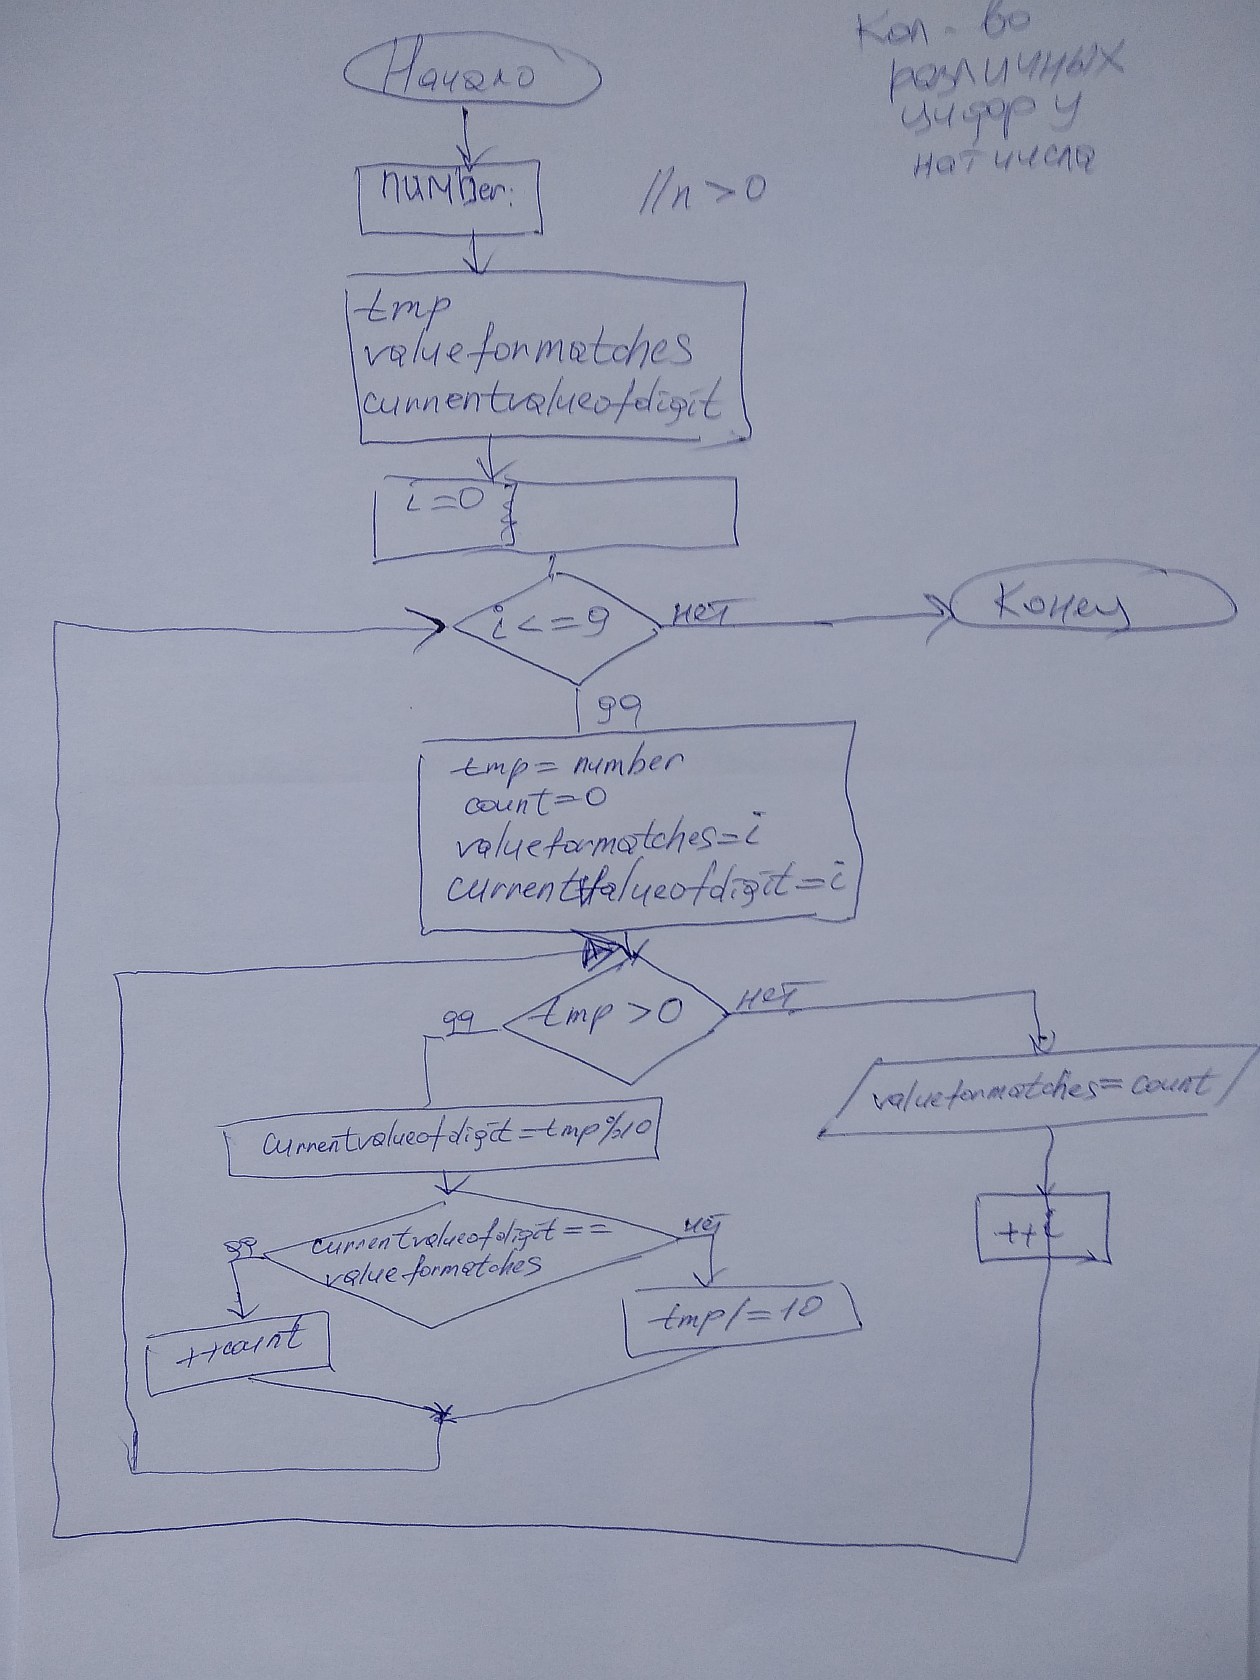 Кол-во
различных
цифр у
нат числа
Начало
number:
//n>0
tmp
valueformatches
currentvalueofdigit
i=0
i<=9
нет
Конец
да
tmp=number
count=0
valueformatches=i
currentvalueofdigit=i
tmp>0
да
нет
valueformatches=count
currentvalueofdigit=tmp%10
++i
currentvalueofdigit==
valueformatches
да
нет
++count
tmp/=10